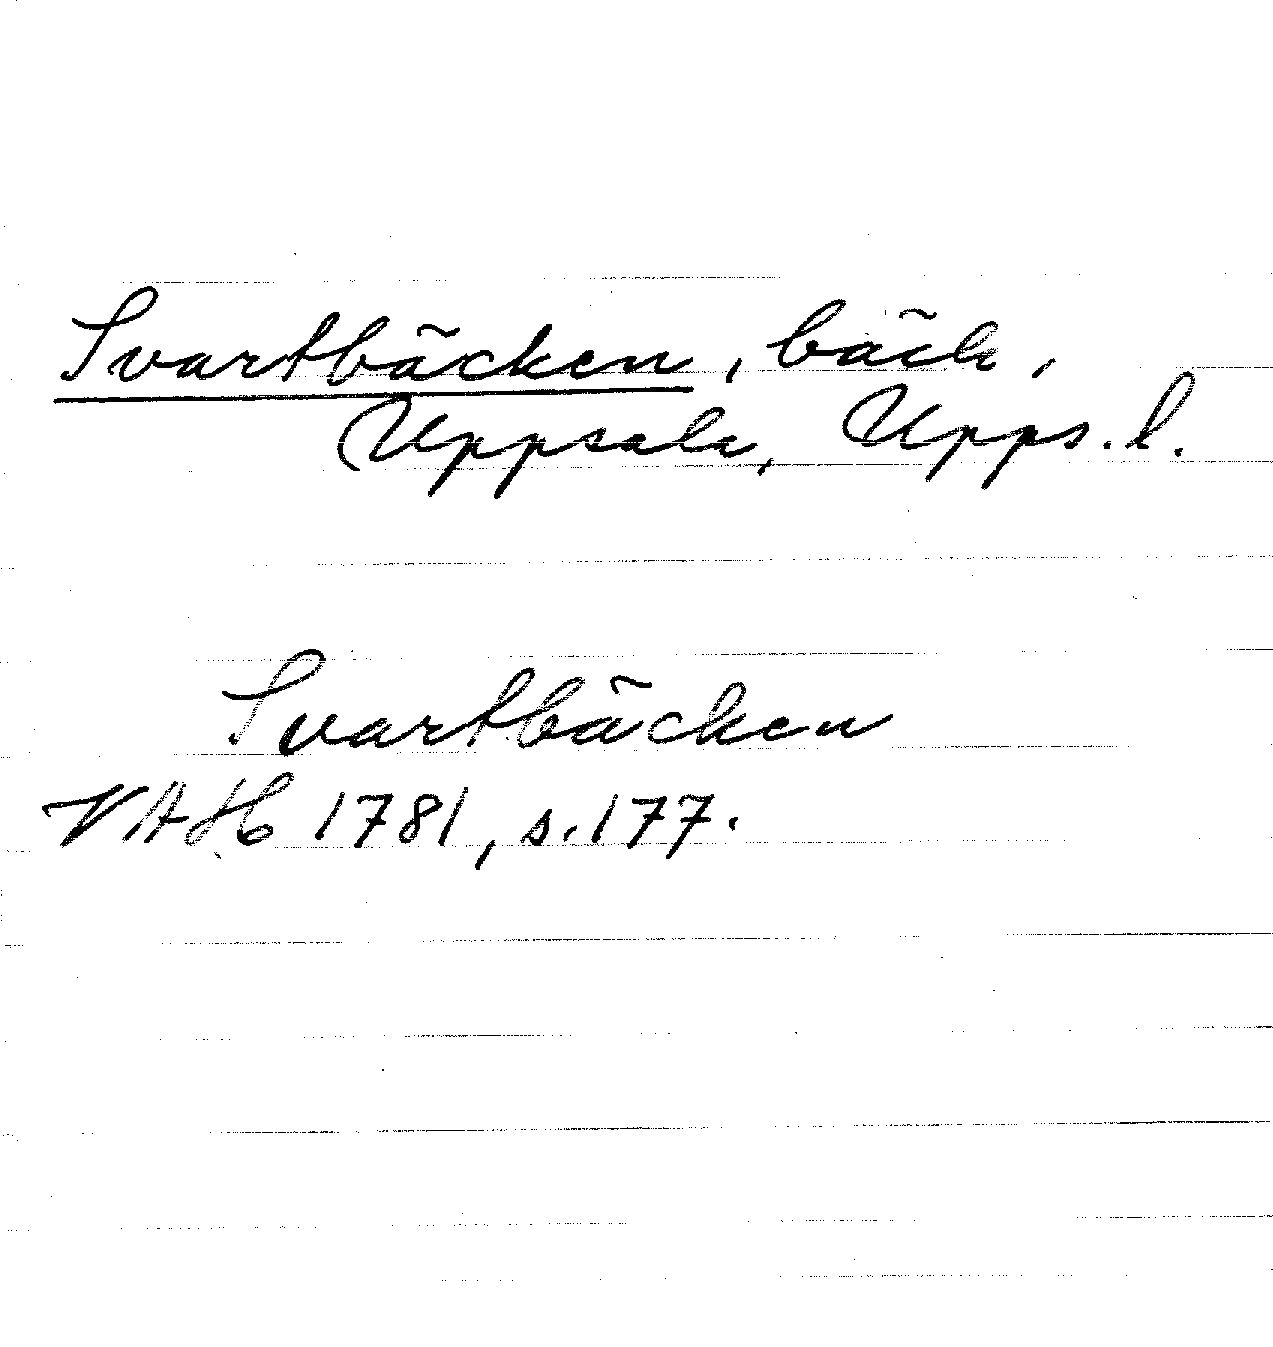 Svartbäcken, bäck,
Uppsala, Upps. l.
Svartbäcken
VAH 1781, s. 177.